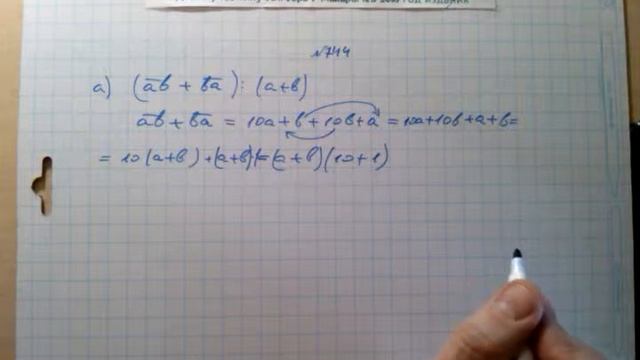 №744
а) (ab + ba) : (a+b)
ab + ba = 10a + b + 10b + a = 10a + 10b + a + b =
= 10(a+b) + (a+b) = (a+b)(10+1)